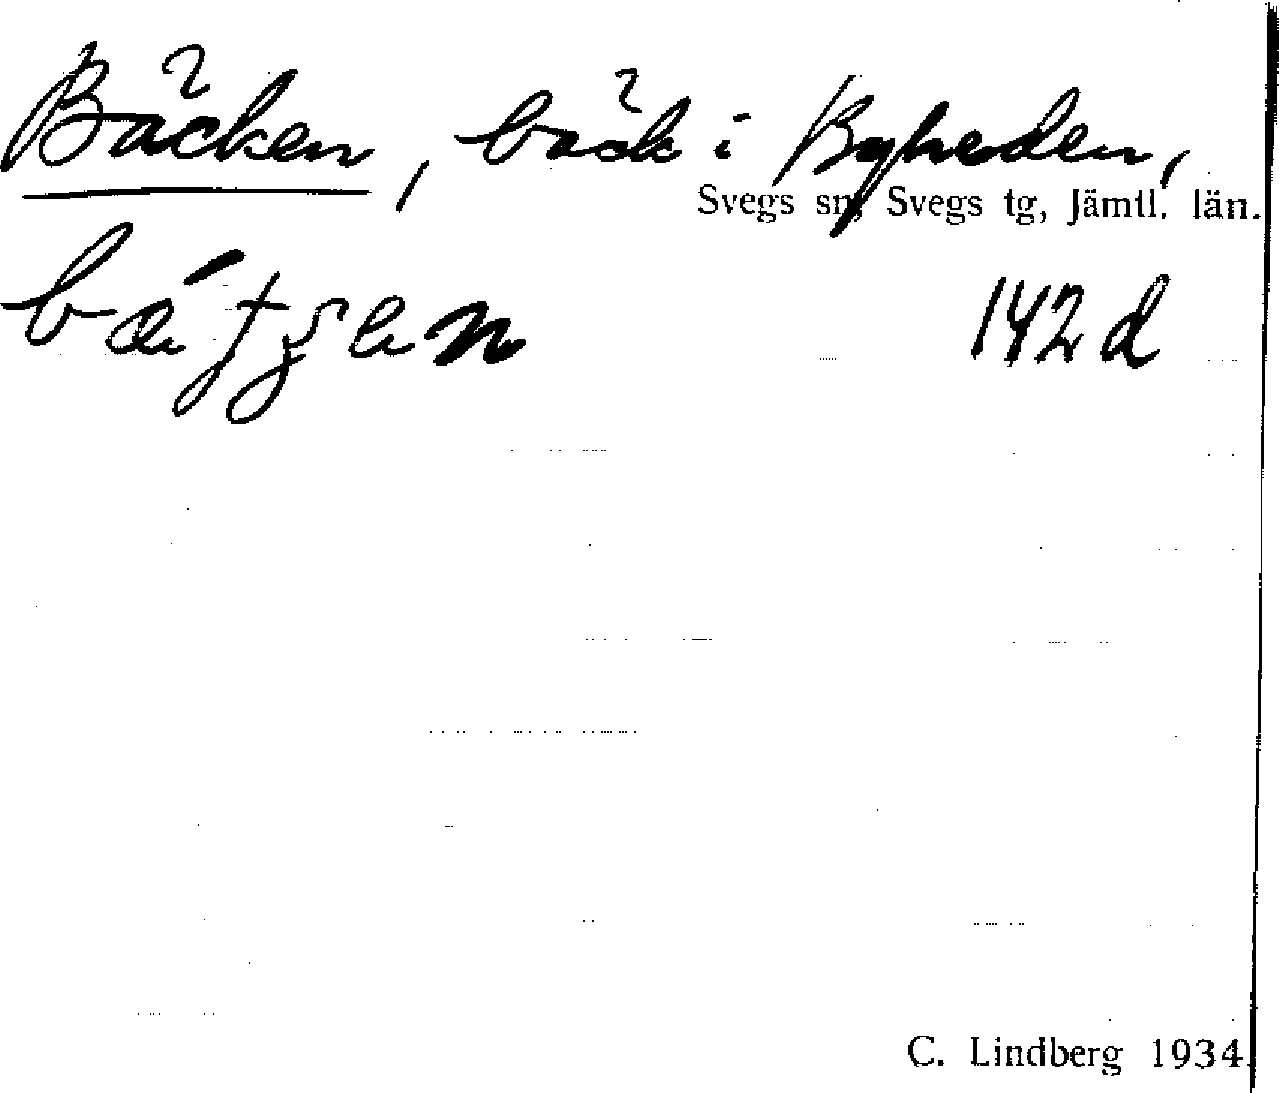 Bäcken, bäck i Byheden,
Svegs sn, Svegs tg, Jämtl. län.
142 d
C. Lindberg 1934.